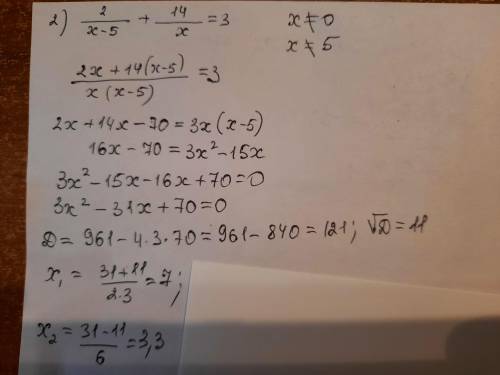 2) 2/(x-5) + 14/x = 3   x ≠ 0
x ≠ 5
(2x+14(x-5))/(x(x-5)) = 3
2x+14x-70=3x(x-5)
16x-70=3x²-15x
3x²-15x-16x+70=0
3x²-31x+70=0
D= 961-4·3·70=961-840=121; √D=11
x₁ = (31+11)/(2·3) = 7;
x₂ = (31-11)/6 = 3,3